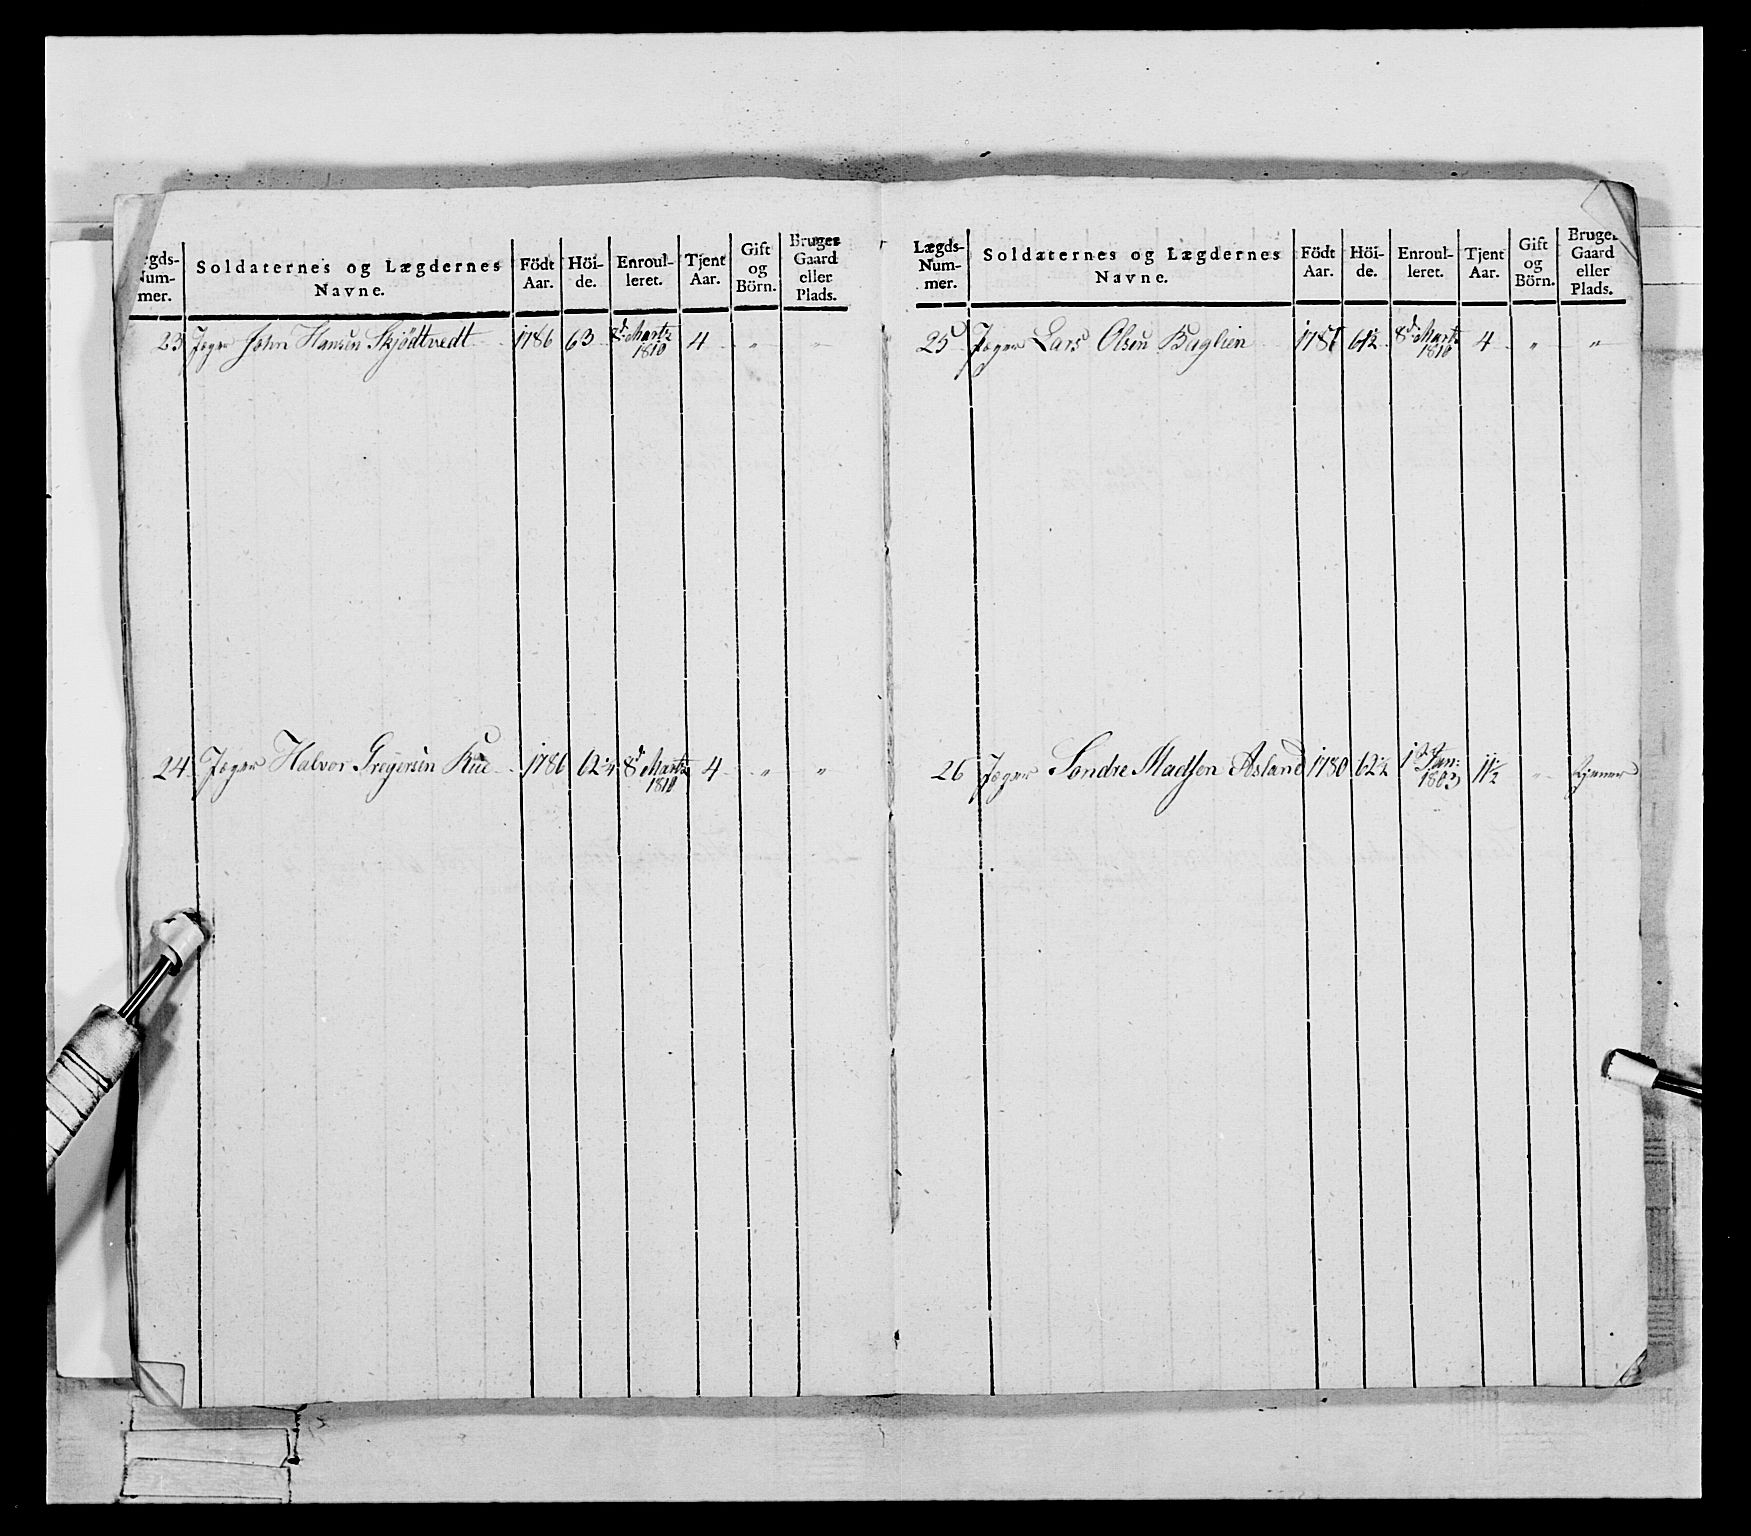 Lægds-Nummer. Soldaternes og Lægdernes Navne. Födt Aar. Höide. Enroulleret. Tjent Aar. Gift og Börn. Bruger Gaard eller Plads.
23 Jæger John Hansen Skjödtvedt 1786 63 8de Martz 1810 4 " "
24 Jæger Halvor Greyersen Rue 1786 62 8de Martz 1810 4 " "
Lægds-Nummer. Soldaternes og Lægdernes Navne. Födt Aar. Höide. Enroulleret. Tjent Aar. Gift og Börn. Bruger Gaard eller Plads.
25 Jæger Lars Olsen Baglien 8de Martz 1810 4 " "
26 Jæger Söndre Madsen Asland 1780 62½ 1ste Jan: 1803 11½ " tjener